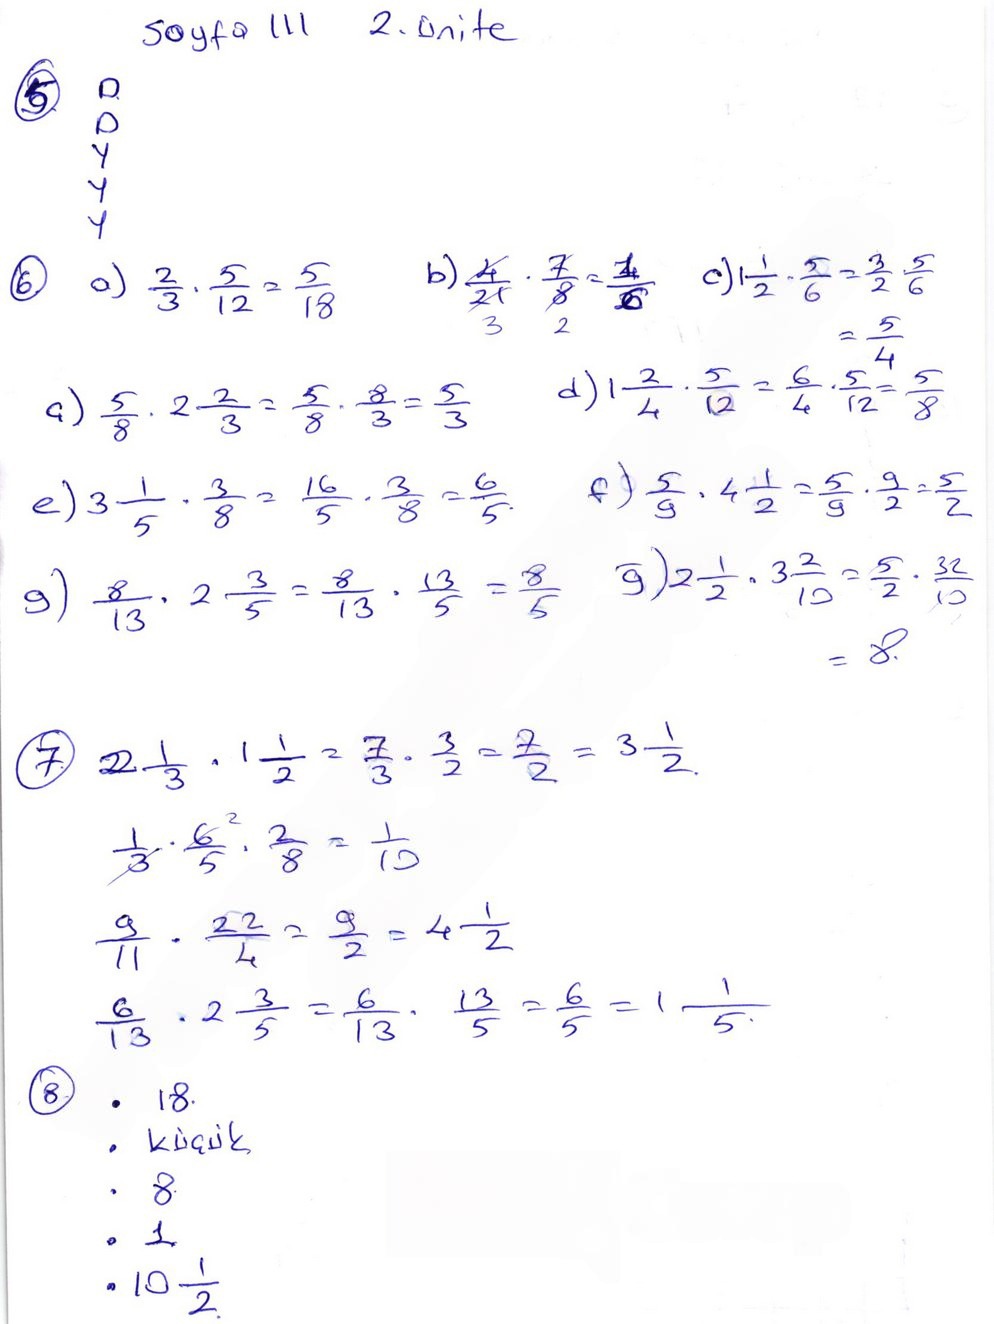 Sayfa 111 2. ünite
5 D
D
Y
Y
Y
6 a) 2/3 . 5/12 = 5/18 b) 4/21 . 7/8 = 1/6 c) 1 1/2 . 5/6 = 3/2 5/6
3 2
= 5/4
ç) 5/8 . 2 2/3 = 5/8 . 8/3 = 5/3 d) 1 2/4 . 5/12 = 6/4 . 5/12 = 5/8
e) 3 1/5 . 3/8 = 16/5 . 3/8 = 6/5 f) 5/9 . 4 1/2 = 5/9 . 9/2 = 5/2
g) 8/13 . 2 3/5 = 8/13 . 13/5 = 8/5 ğ) 2 1/2 . 3 2/10 = 5/2 . 32/10
= 8.
7 2 1/3 . 1 1/2 = 7/3 . 3/2 = 7/2 = 3 1/2.
1/3 . 6/5 2 . 2/8 = 1/10
9/11 . 22/4 = 9/2 = 4 1/2
6/13 . 2 3/5 = 6/13 . 13/5 = 6/5 = 1 1/5.
8 • 18.
• küçük
• 8
• 1
• 10 1/2